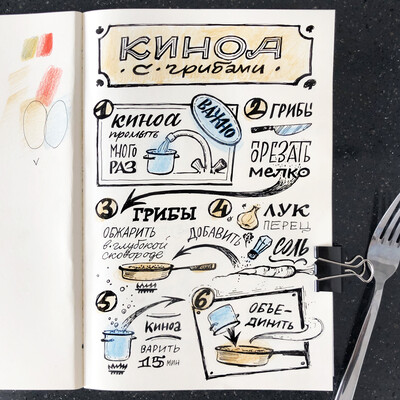 КИНОА
с грибами
1
киноа
промыть
МНОГО
РАЗ
ВАЖНО
2 ГРИБЫ
ОРЕЗАТЬ
мелко
3 ГРИБЫ
ОБЖАРИТЬ
в глубокой
сковороде
4 ЛУК
ПЕРЕЦ
ДОБАВИТЬ
СОЛЬ
5
КИНОА
ВАРИТЬ
15 мин
6
ОБЪЕ-
ДИНИТЬ